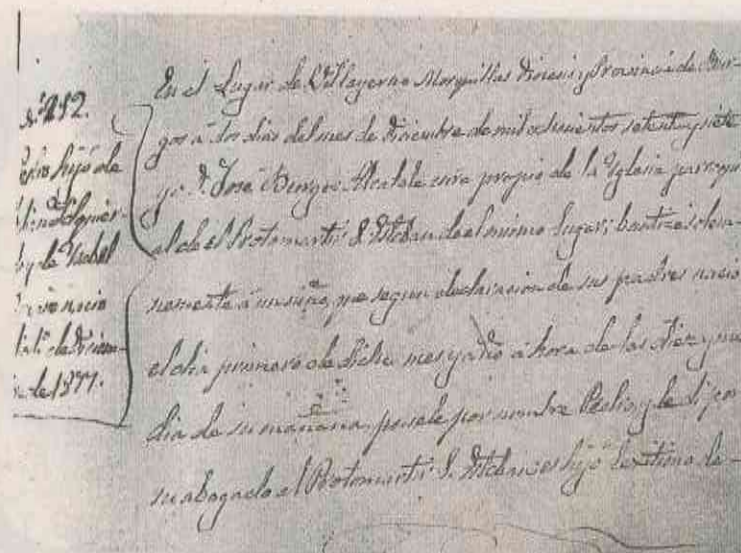 Nº 212.
hijo de
y de Isabel
nació
de Diciem-
de 1877.
En el Lugar de Villayerno Morquillas Diocesis y Provincia de Bur-
gos á dos dias del mes de Diciembre de mil ochocientos setenta y siete
yo D. José Burgos Alcalde cura propio de la Yglesia parroqui-
al de el Protomartir S. Esteban de el mismo lugar; bauticé solem-
nemente á un niño, que segun declaracion de sus padres nació
el dia primero de dicho mes y año á hora de las diez y me
dia de su mañana pusele por nombre y le di por
su abogado el Protomartir S. Esteban es hijo lexitimo de